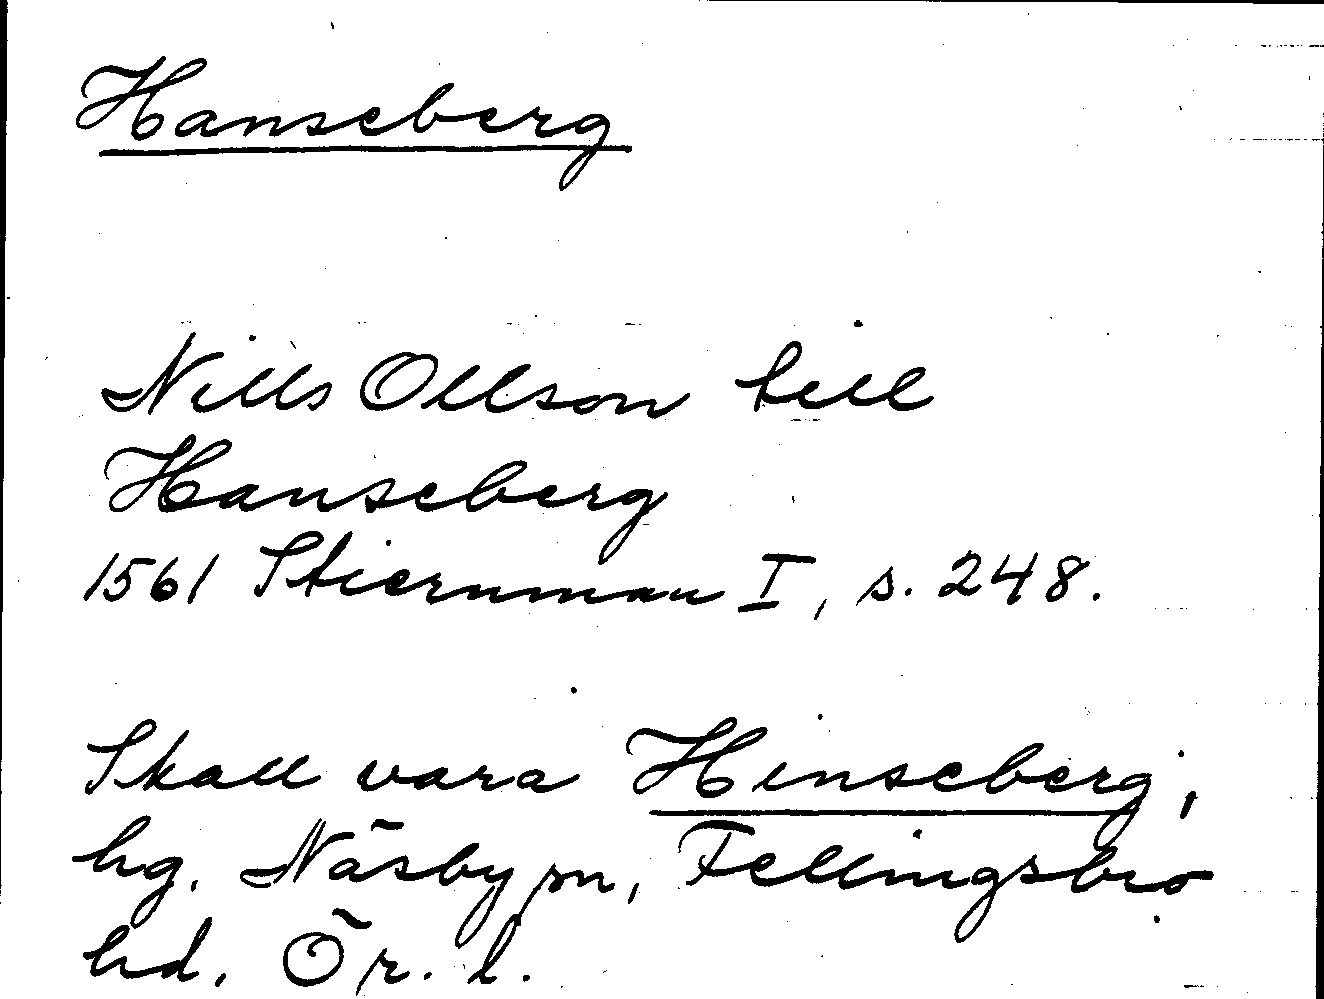 Hanseberg
Nills Ollson till
Hanseberg
1561 Stiernman I, s. 248.
Skall vara Hinseberg,
hg. Näsby sn, Fellingsbro
hd. Ör. l.